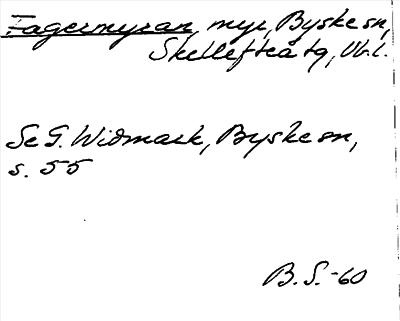 Fagermyran, myr, Byske sn,
Skellefteå tg, Vb. l.
Se G. Widmark, Byske sn,
s. 55
B. S. -60